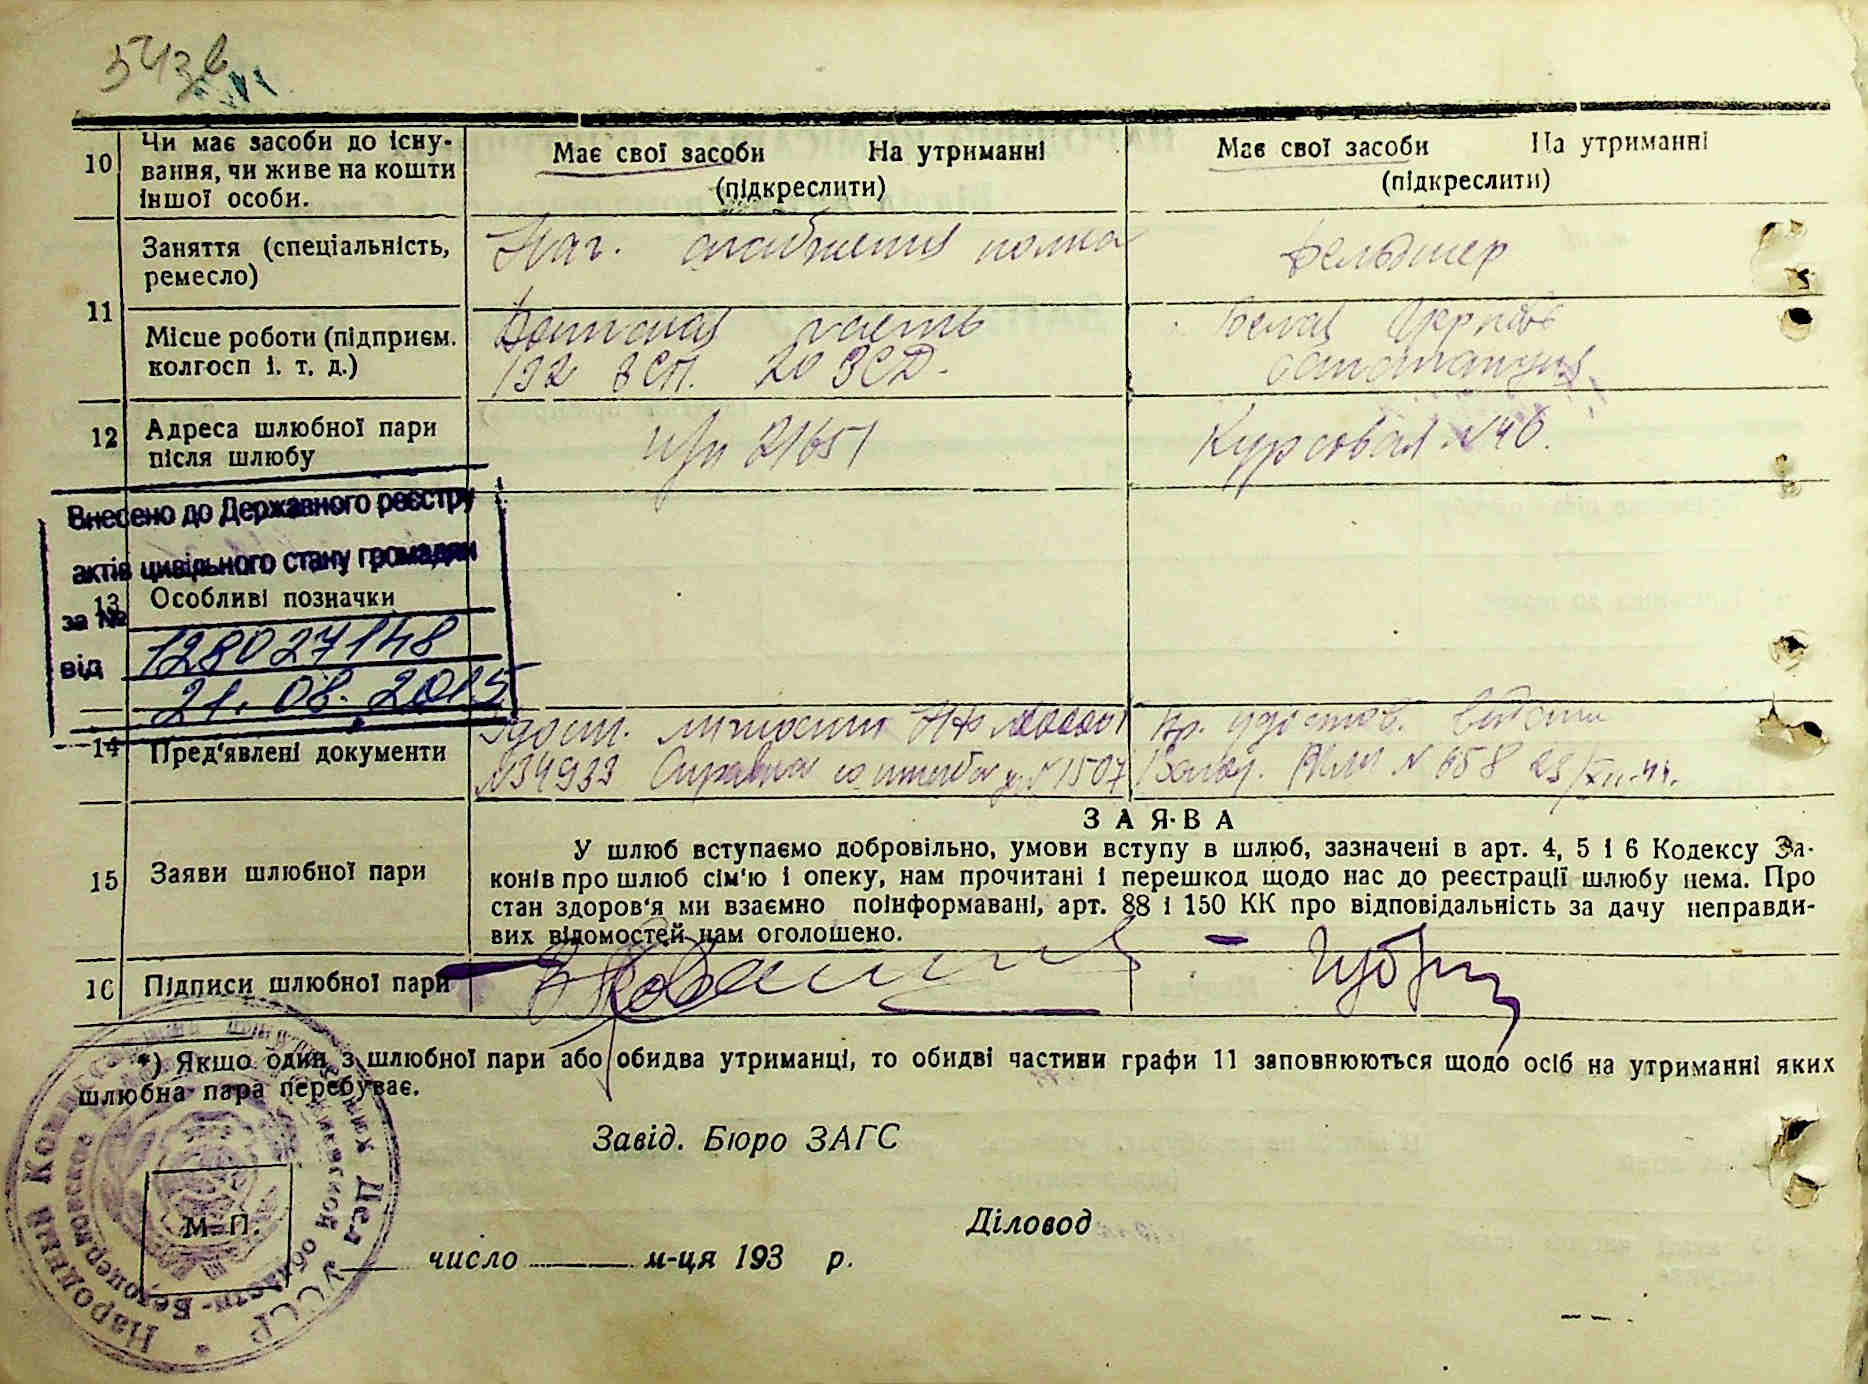 10 Чи має засоби до існу-
вання, чи живе на кошти
іншої особи.
Має свої засоби На утриманні
(підкреслити)
Має свої засоби На утриманні
(підкреслити)
11
Заняття (спеціальність,
ремесло)
Нач. снабжения полка
Фельдшер
Місце роботи (підприєм.
колгосп і. т. д.)
Воинская часть
132 ЗСП. 20 ЗСД.
Белая Церковь
12 Адреса шлюбної пари
після шлюбу
п/п 21651
Курсовая №46.
Внесено до Державного реєстру
актів цивільного стану громадян
за № 128027148
від 21.08.2015
13 Особливі позначки
14 Пред'явлені документи
Удост. личности
№34933 Справка со штаба №1507
Вр. удостов.
№ 658 28/XII-44.
З А Я В А
15 Заяви шлюбної пари
У шлюб вступаємо добровільно, умови вступу в шлюб, зазначені в арт. 4, 5 і 6 Кодексу За-
конів про шлюб сім'ю і опеку, нам прочитані і перешкод щодо нас до реєстрації шлюбу нема. Про
стан здоров'я ми взаємно поінформавані, арт. 88 і 150 КК про відповідальність за дачу неправди-
вих відомостей нам оголошено.
16 Підписи шлюбної пари
*) Якщо один з шлюбної пари або обидва утриманці, то обидві частини графи 11 заповнюються щодо осіб на утриманні яких
шлюбна пара перебуває.
Завід. Бюро ЗАГС
Діловод
М. П.
число м-ця 193 р.
Народный Комиссариат Внутренних Дел УССР